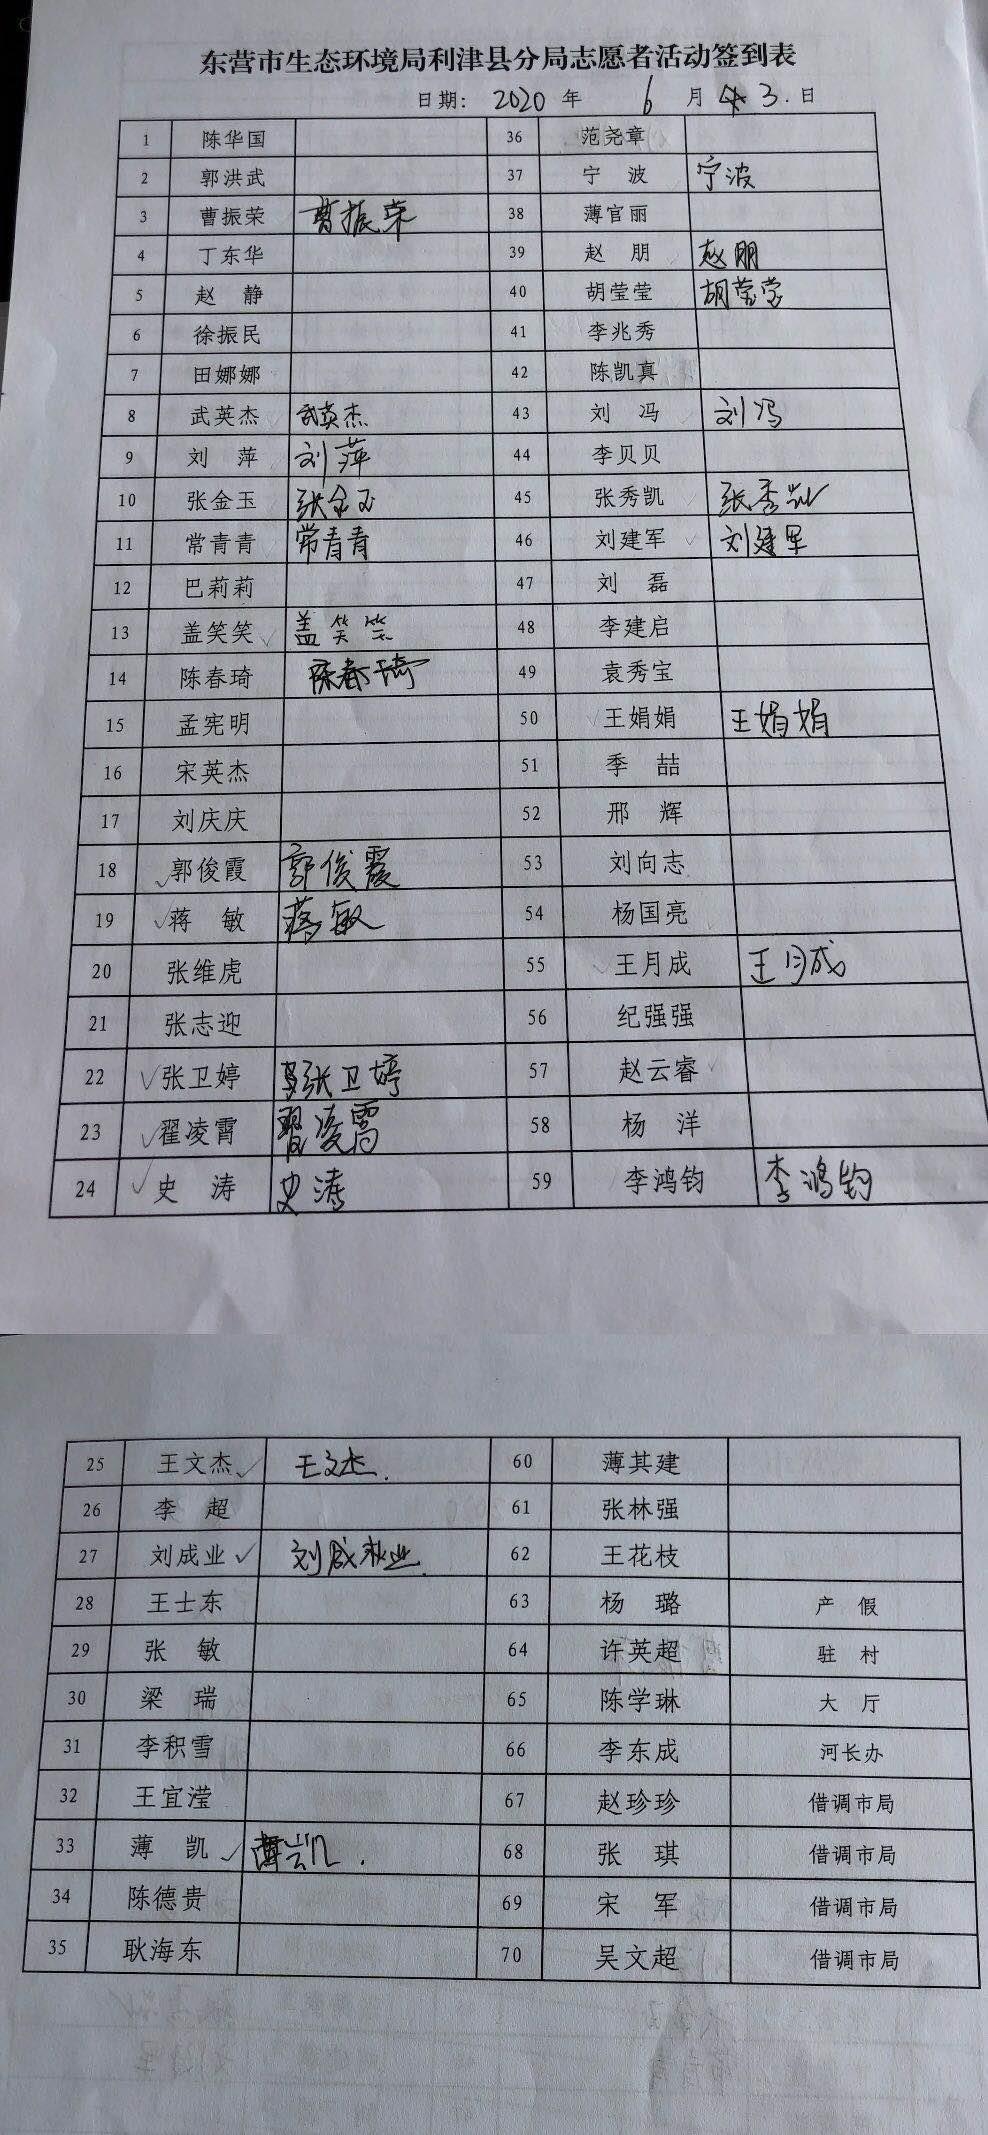 东营市生态环境局利津县分局志愿者活动签到表
日期: 2020 年 6 月 3. 日
1 陈华国 36 范尧章
2 郭洪武 37 宁 波 宁波
3 曹振荣 曹振荣 38 薄官丽
4 丁东华 39 赵 朋 赵朋
5 赵 静 40 胡莹莹 胡莹莹
6 徐振民 41 李兆秀
7 田娜娜 42 陈凯真
8 武英杰 武英杰 43 刘 冯 刘冯
9 刘 萍 刘萍 44 李贝贝
10 张金玉 张金玉 45 张秀凯 张秀凯
11 常青青 常青青 46 刘建军 刘建军
12 巴莉莉 47 刘 磊
13 盖笑笑 盖笑笑 48 李建启
14 陈春琦 陈春琦 49 袁秀宝
15 孟宪明 50 王娟娟 王娟娟
16 宋英杰 51 季 喆
17 刘庆庆 52 邢 辉
18 郭俊霞 郭俊霞 53 刘向志
19 蒋 敏 蒋敏 54 杨国亮
20 张维虎 55 王月成 王月成
21 张志迎 56 纪强强
22 张卫婷 张卫婷 57 赵云睿
23 翟凌霄 翟凌霄 58 杨 洋
24 史 涛 史涛 59 李鸿钧 李鸿钧
25 王文杰 王文杰. 60 薄其建
26 李 超 61 张林强
27 刘成业 刘成业. 62 王花枝
28 王士东 63 杨 璐 产 假
29 张 敏 64 许英超 驻 村
30 梁 瑞 65 陈学琳 大 厅
31 李积雪 66 李东成 河长办
32 王宜滢 67 赵珍珍 借调市局
33 薄 凯 薄凯. 68 张 琪 借调市局
34 陈德贵 69 宋 军 借调市局
35 耿海东 70 吴文超 借调市局